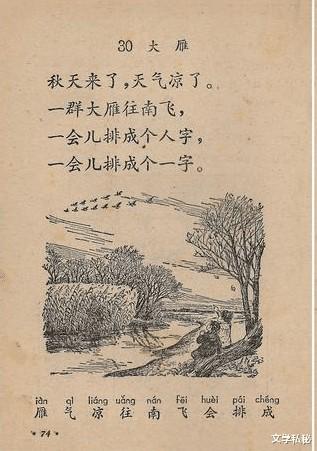 30 大雁
秋天来了，天气凉了。
一群大雁往南飞，
一会儿排成个人字，
一会儿排成个一字。
iàn qì liáng uǎng nán fēi huèi pái chéng
雁 气 凉 往 南 飞 会 排 成
74
文学私秘